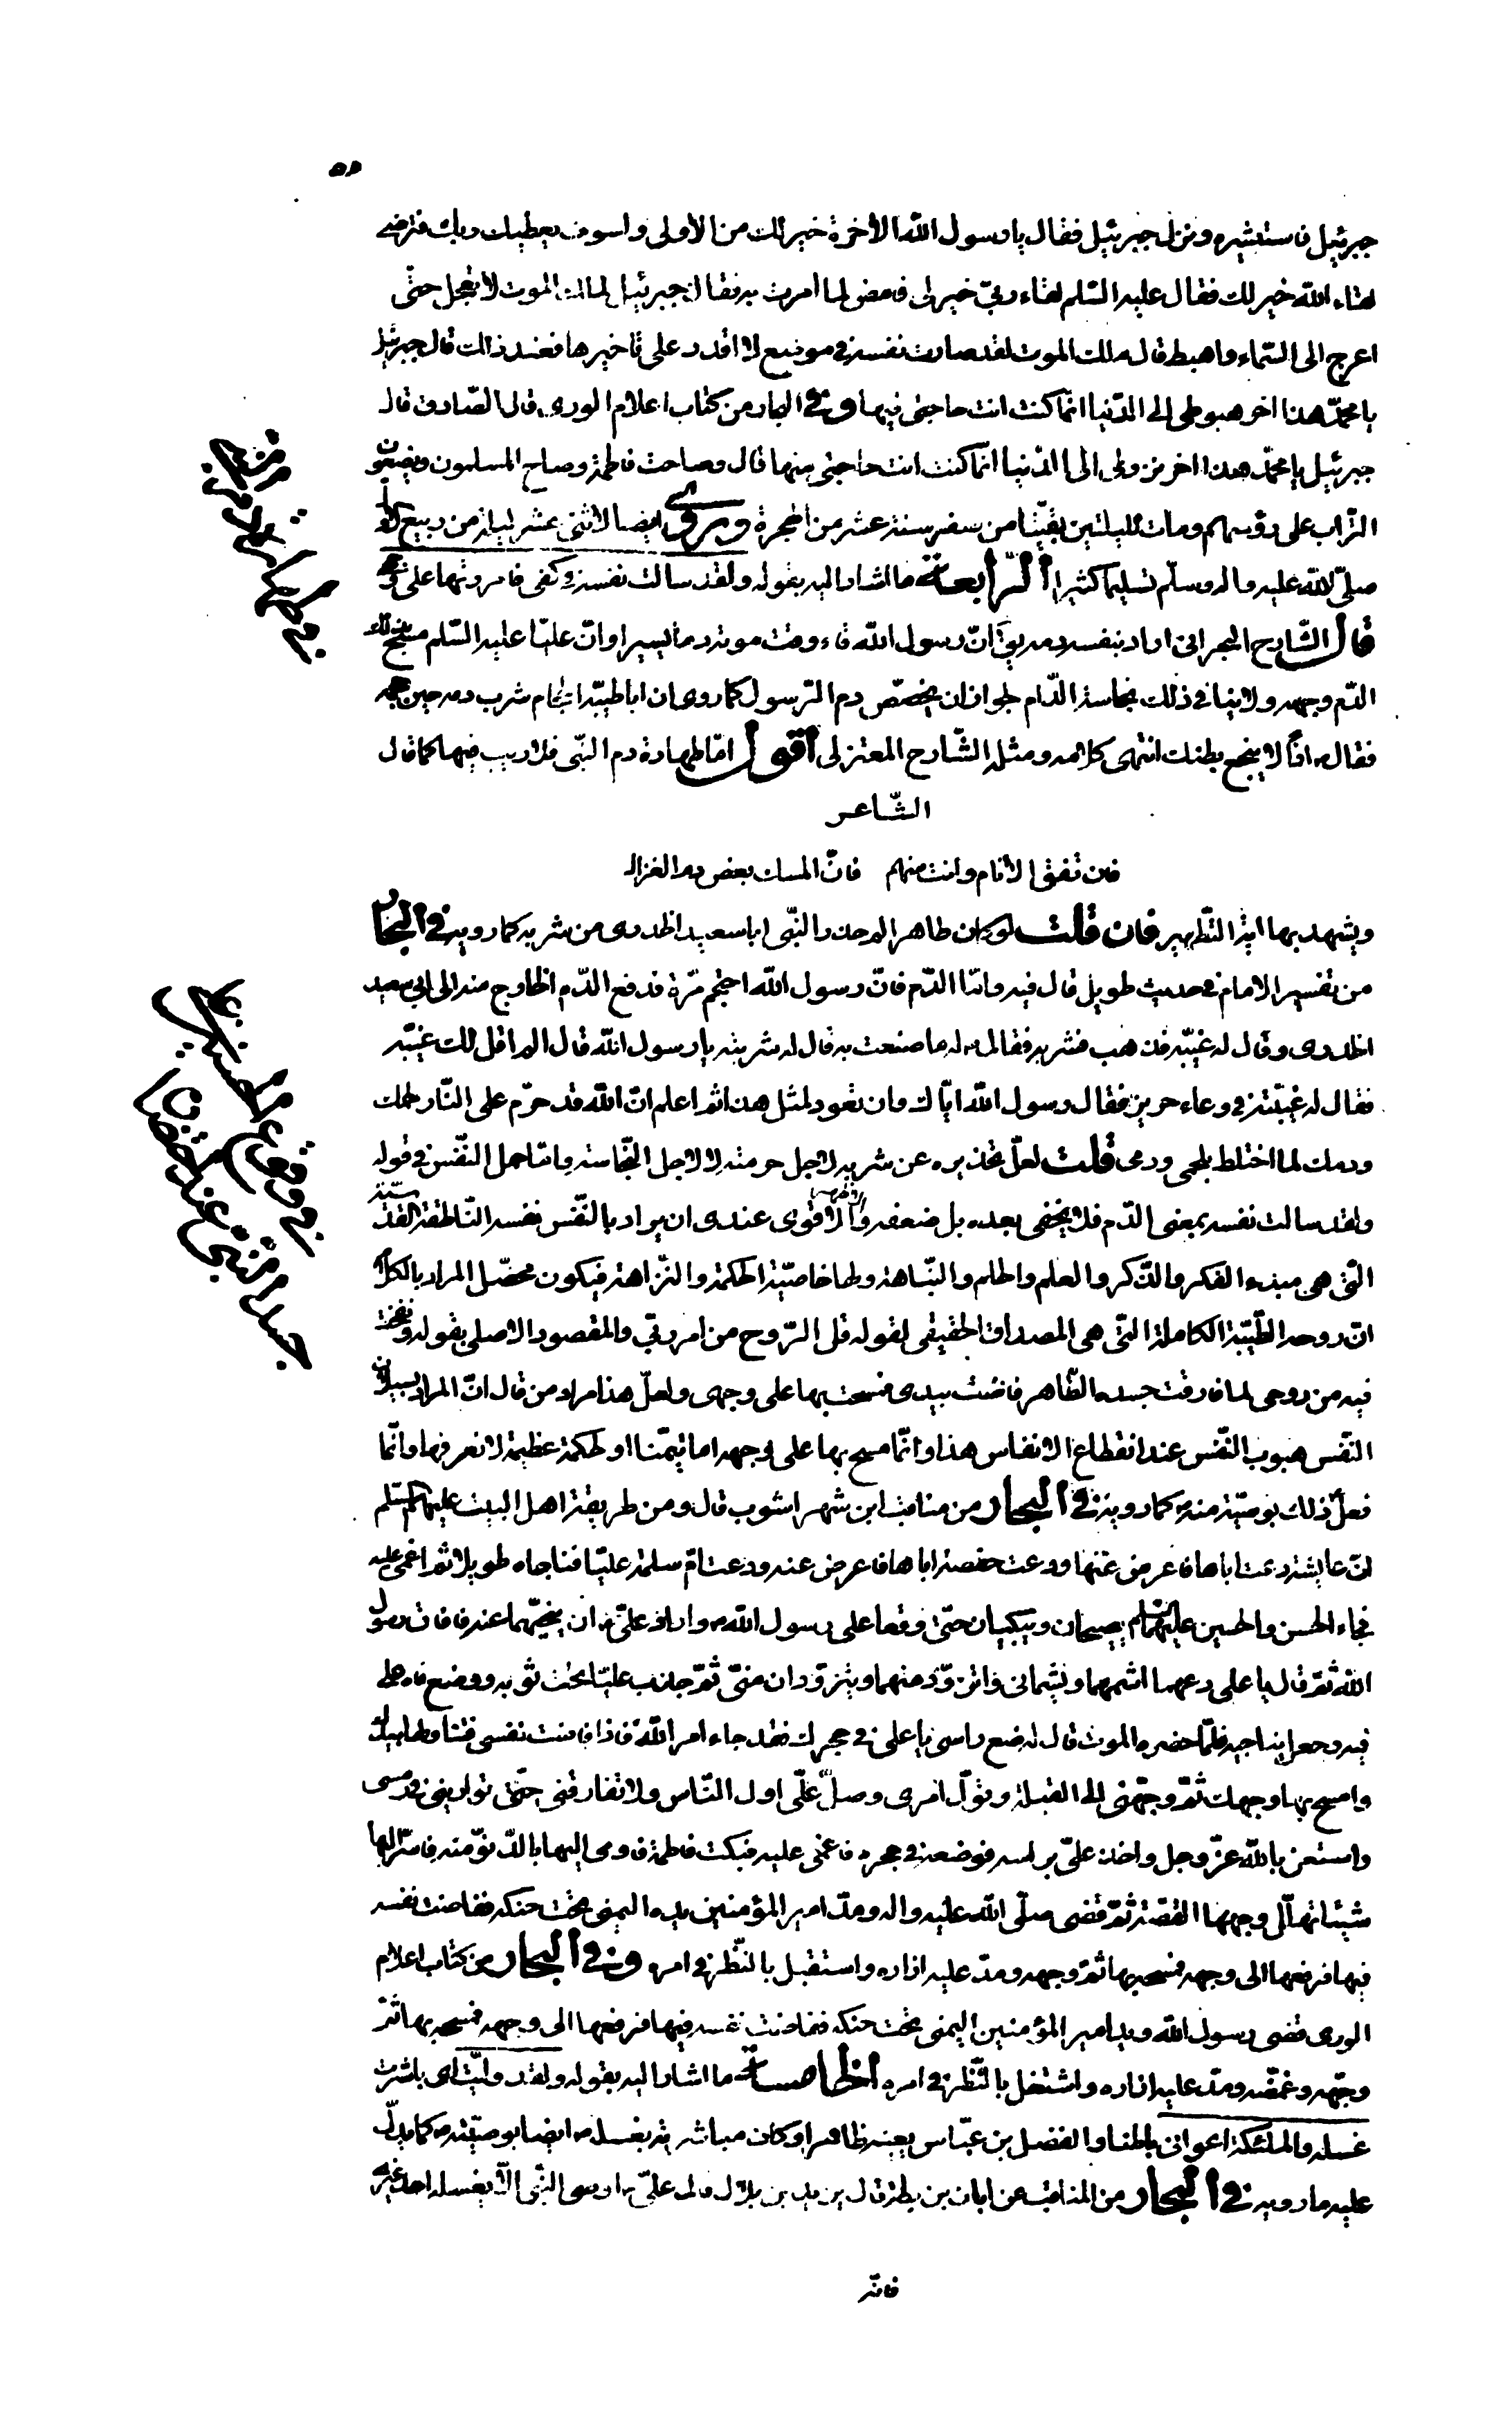 جبرئيل فاستشيره ونزل جبرئيل فقال يا رسول الله الآخرة خير لك من الأولى ولسوف يعطيك ربك فترضى
لقاء الله خير لك فقال عليه السّلم لقاء ربّي خير لي فامض لما امرت به فقال جبرئيل لملك الموت لا تعجل حتّى
اعرج الى السّماء واهبط قال ملك الموت لقد صارت نفسه في موضع لا اقدر على تاخيرها فعند ذلك قال جبرئيل
يا محمّد هذا اخر هبوطي الى الدّنيا انّما كنت انت حاجتي فيها وفي البحار من كتاب اعلام الورى قال الصّادق قال
جبرئيل يا محمّد هذا اخر نزولي الى الدّنيا انّما كنت انت حاجتي منها قال وصاحت فاطمة وصاح المسلمون ويضعون
التّراب على رؤسهم ومات لليلتين بقيتا من صفر سنة عشر من الهجرة وروي ايضا لاثنتي عشر ليلة من ربيع الاوّل
صلّى الله عليه واله وسلّم تسليما كثيرا الرّابعة ما اشار اليه بقوله ولقد سالت نفسه في كفى فامررتها على وجهى
قال الشّارح البحراني اراد بنفسه دمه يق انّ رسول الله قاء وقت موته دما يسيرا وانّ عليّا عليه السّلم مسح بذلك
الدّم وجهه ولا ينافي ذلك نجاسة الدّم لجواز ان يخصّص دم الرّسول كما روى ان ابا طيبة الحجام شرب دمه حين حجمه
فقال اذًا لا ينجع بطنك انتهى كلامه ومثله الشّارح المعتزلى اقول امّا طهارة دم النبّي فلا ريب فيها كما قال
الشّاعر
فان تفق الانام وانت منهم فانّ المسك بعض دم الغزال
ويشهد بها اية التّطهير فان قلت لو كان طاهرا لم حذر النبّى ابا سعيد الخدرى من شربه كما رويه في البحار
من تفسير الامام في حديث طويل قال فيه وامّا الدّم فانّ رسول الله احتجم مرّة فدفع الدّم الخارج منه الى ابي سعيد
الخدرى وقال له غيّبه فذهب فشربه فقال له ما صنعت به قال له شربته يا رسول الله قال الم اقل لك غيّبه
فقال له غيّبته في وعاء حريز فقال رسول الله ايّاك وان تعود لمثل هذا ثم اعلم انّ الله قد حرّم على النّار لحمك
ودمك لما اختلط بلحمى ودمى قلت لعلّ تحذيره عن شربه لاجل حرمته لا لاجل النّجاسة وامّا حمل النّفس في قوله
ولقد سالت نفسه بمعنى الدّم فلا يخفى بعده بل ضعفه والاقوى عندى ان يراد بالنّفس نفسه النّاطقة القدسيّة
الّتى هى مبدء الفكر والذّكر والعلم والحلم والنّباهة ولها خاصيّة الحكمة والنّزاهة فيكون محصّل المراد بالكلام
انّ روحه الطّيّبة الكاملة الّتى هى المصداق الحقيقى لقوله قل الرّوح من امر ربّي والمقصود الاصلى بقوله ونفخت
فيه من روحى لما فارقت جسده الطّاهر فاضت بيدى فمسحت بها على وجهى ولعلّ هذا مراد من قال انّ المراد بسيلان
النّفس هبوب النّفس عند انقطاع الانفاس هذا وانّما مسح بها على وجهه اما تيمّنا او لحكمة عظيمة لا نعرفها وانّما
فعل ذلك بوصيّة منه كما رويه في البحار من مناقب ابن شهر اشوب قال ومن طريقة اهل البيت عليهم السّلم
انّ عايشة دعت اباها فاعرض عنها ودعت حفصة اباها فاعرض عنه ودعت امّ سلمة عليّا فناجاه طويلا ثمّ اغمى عليه
فجاء الحسن والحسين عليهما السّلم يصيحان ويبكيان حتّى وقعا على رسول الله واراد علىّ ان ينحيّهما عنه فافاق رسول
الله ثمّ قال يا على دعهما اشمهما ويشمانى واتزوّد منهما ويتزوّدان منّى ثمّ جذب عليّا تحت ثوبه ووضع فاه على
فيه وجعل يناجيه فلمّا حضره الموت قال له ضع راسى يا على في حجرك فقد جاء امر الله فاذا فاضت نفسى فتناولها بيدك
وامسح بها وجهك ثمّ وجّهنى الى القبلة وتولّ امرى وصلّ علىّ اول النّاس ولا تفارقنى حتّى توارينى في رمسى
واستعن بالله عزّ وجل واخذ علىّ براسه فوضعه في حجره فاغمى عليه فبكت فاطمة فاومى اليها بالدّنوّ منه فاسرّ اليها
شيئا تهلّل وجهها القصّة ثمّ قضى صلّى الله عليه واله ومدّ امير المؤمنين يده اليمنى تحت حنكه ففاضت نفسه
فيها فرفعها الى وجهه فمسحه بها ثمّ وجّهه ومدّ عليه ازاره واستقبل بالنّظر في امره وفي البحار من كتاب اعلام
الورى قضى رسول الله ويد امير المؤمنين اليمنى تحت حنكه ففاضت نفسه فيها فرفعها الى وجهه فمسحه بها ثمّ
وجّهه وغمّضه ومدّ عليه ازاره واشتغل بالنّظر في امره الخامسة ما اشار اليه بقوله ولقد ولّيت اى باشرت
غسله والملئكة اعوانى باطنا والفضل بن عبّاس يعينه ظاهرا وكان مباشرته بغسله ايضا بوصيّته كما يدلّ
عليه ما رويه في البحار من المناقب عن ابان بن بطة قال يزيد بن بلال قال علىّ اوصى النبّى الّا يغسله احد غيرى
فانّه